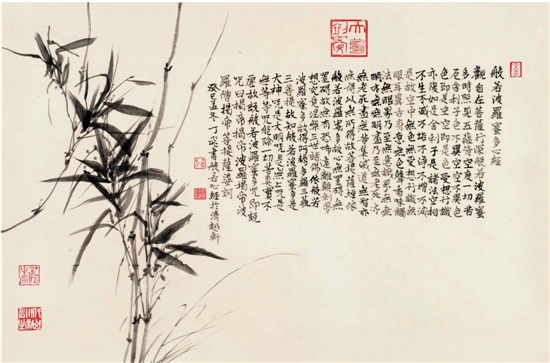 般若波羅蜜多心經
觀自在菩薩行深般若波羅蜜
多時照見五蘊皆空度一切苦
厄舍利子色不異空空不異色
色即是空空即是色受想行識
亦復如是舍利子是諸法空相
不生不滅不垢不淨不增不減
是故空中無色無受想行識無
眼耳鼻舌身意無色聲香味觸
法無眼界乃至無意識界無無
明亦無無明盡乃至無老死亦
無老死盡無苦集滅道無智亦
無得以無所得故菩提薩埵依
般若波羅蜜多故心無罣礙無
罣礙故無有恐怖遠離顛倒夢
想究竟涅槃三世諸佛依般若
波羅蜜多故得阿耨多羅三藐
三菩提故知般若波羅蜜多是
大神咒是大明咒是無上咒是
無等等咒能除一切苦真實不
虛故說般若波羅蜜多咒即說
咒曰揭帝揭帝波羅揭帝波
羅僧揭帝菩提薩婆訶
癸巳孟冬丁書般若心經於清越軒